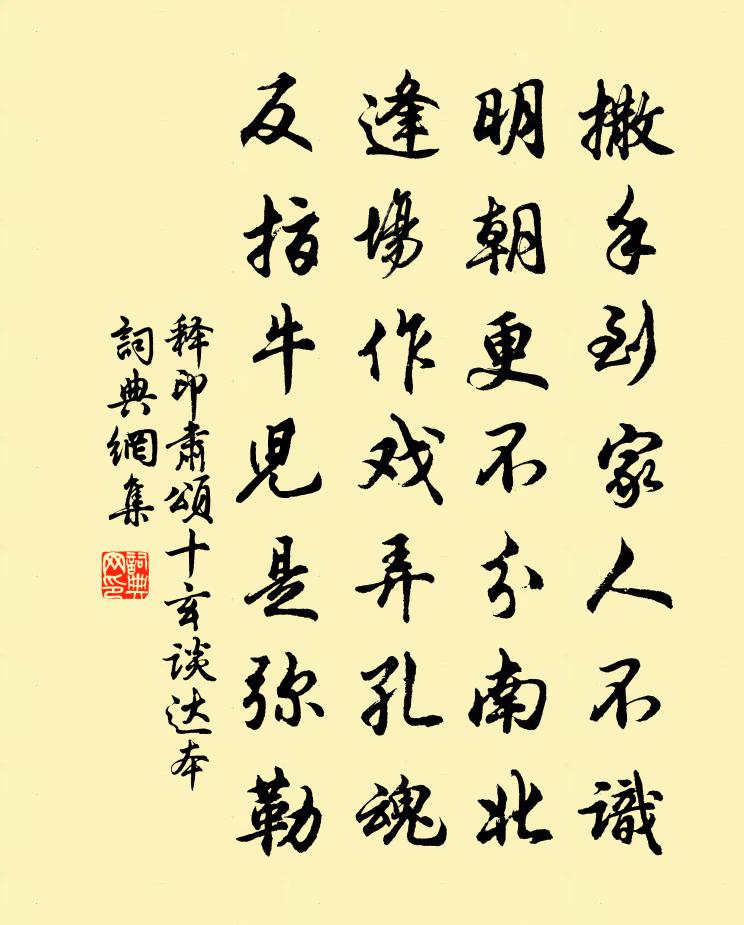 撒手到家人不識
明朝更不分南北
逢場作戏弄孔魂
反指牛児是弥勒
释印肅頌十玄談达本
詞典網集
詞典网印